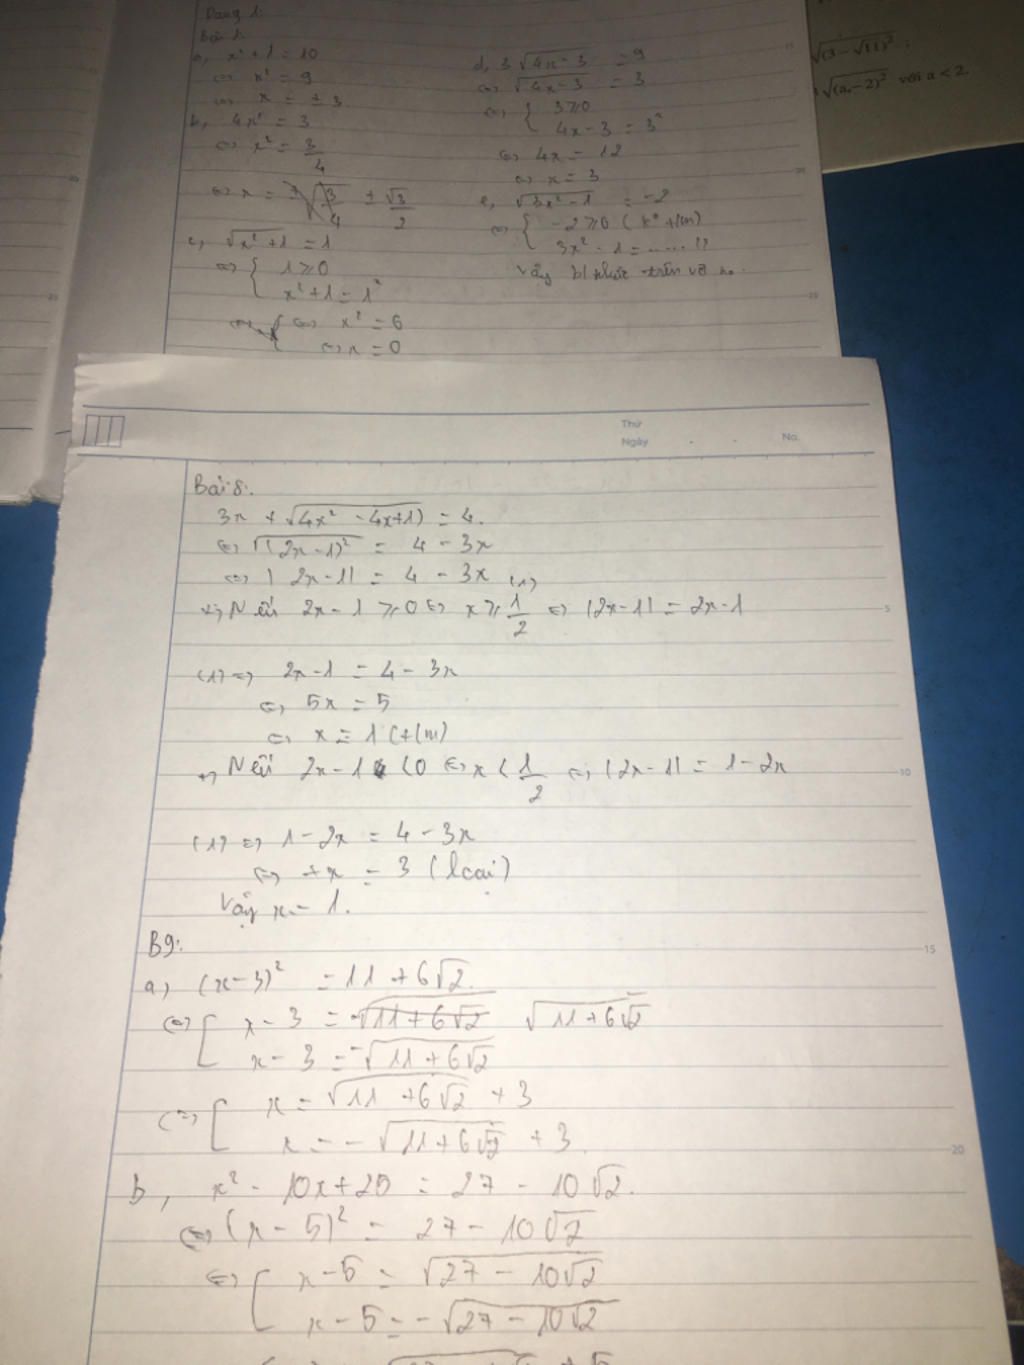 Dạng 1:
Bài 1:
a, x² + 1 = 10
⇔ x² = 9
⇔ x = ± 3
b, 4x² = 3
⇔ x² = 3/4
⇔ x = ± √3/2
c, √(x²+1) = 1
⇔ { 1 ≥ 0
x² + 1 = 1²
⇔ x² = 0
⇔ x = 0
d, 3√(4x-3) = 9
⇔ √(4x-3) = 3
⇔ { 3 ≥ 0
4x - 3 = 3²
⇔ 4x = 12
⇔ x = 3
e, √(3x²-1) = -2
⇔ { -2 ≥ 0 (k° t/m)
3x² - 1 = ......
Vậy trên vô no.
√(3 - √11)² ;
√(a - 2)² với a < 2.
Thứ
Ngày . . No.
Bài 8:
3x + √(4x² - 4x+1) = 4.
⇔ √(2x-1)² = 4 - 3x
⇔ |2x-1| = 4 - 3x (1)
+, Nếu 2x - 1 ≥ 0 ⇔ x ≥ 1/2 ⇔ |2x-1| = 2x-1
5
(1) ⇔ 2x-1 = 4 - 3x
⇔ 5x = 5
⇔ x = 1 (t/m)
+, Nếu 2x - 1 < 0 ⇔ x < 1/2 ⇔ |2x-1| = 1-2x
10
(1) ⇔ 1 - 2x = 4 - 3x
⇔ x = 3 (loại)
Vậy x = 1.
B9:
15
a, (x-3)² = 11 + 6√2.
⇔ [ x - 3 = √(11+6√2) √(11+6√2)
x - 3 = -√(11+6√2)
⇔ [ x = √(11+6√2) + 3
x = -√(11+6√2) + 3
20
b, x² - 10x + 25 = 27 - 10√2.
⇔ (x - 5)² = 27 - 10√2
⇔ [ x-5 = √(27 - 10√2)
x - 5 = -√(27 - 10√2)